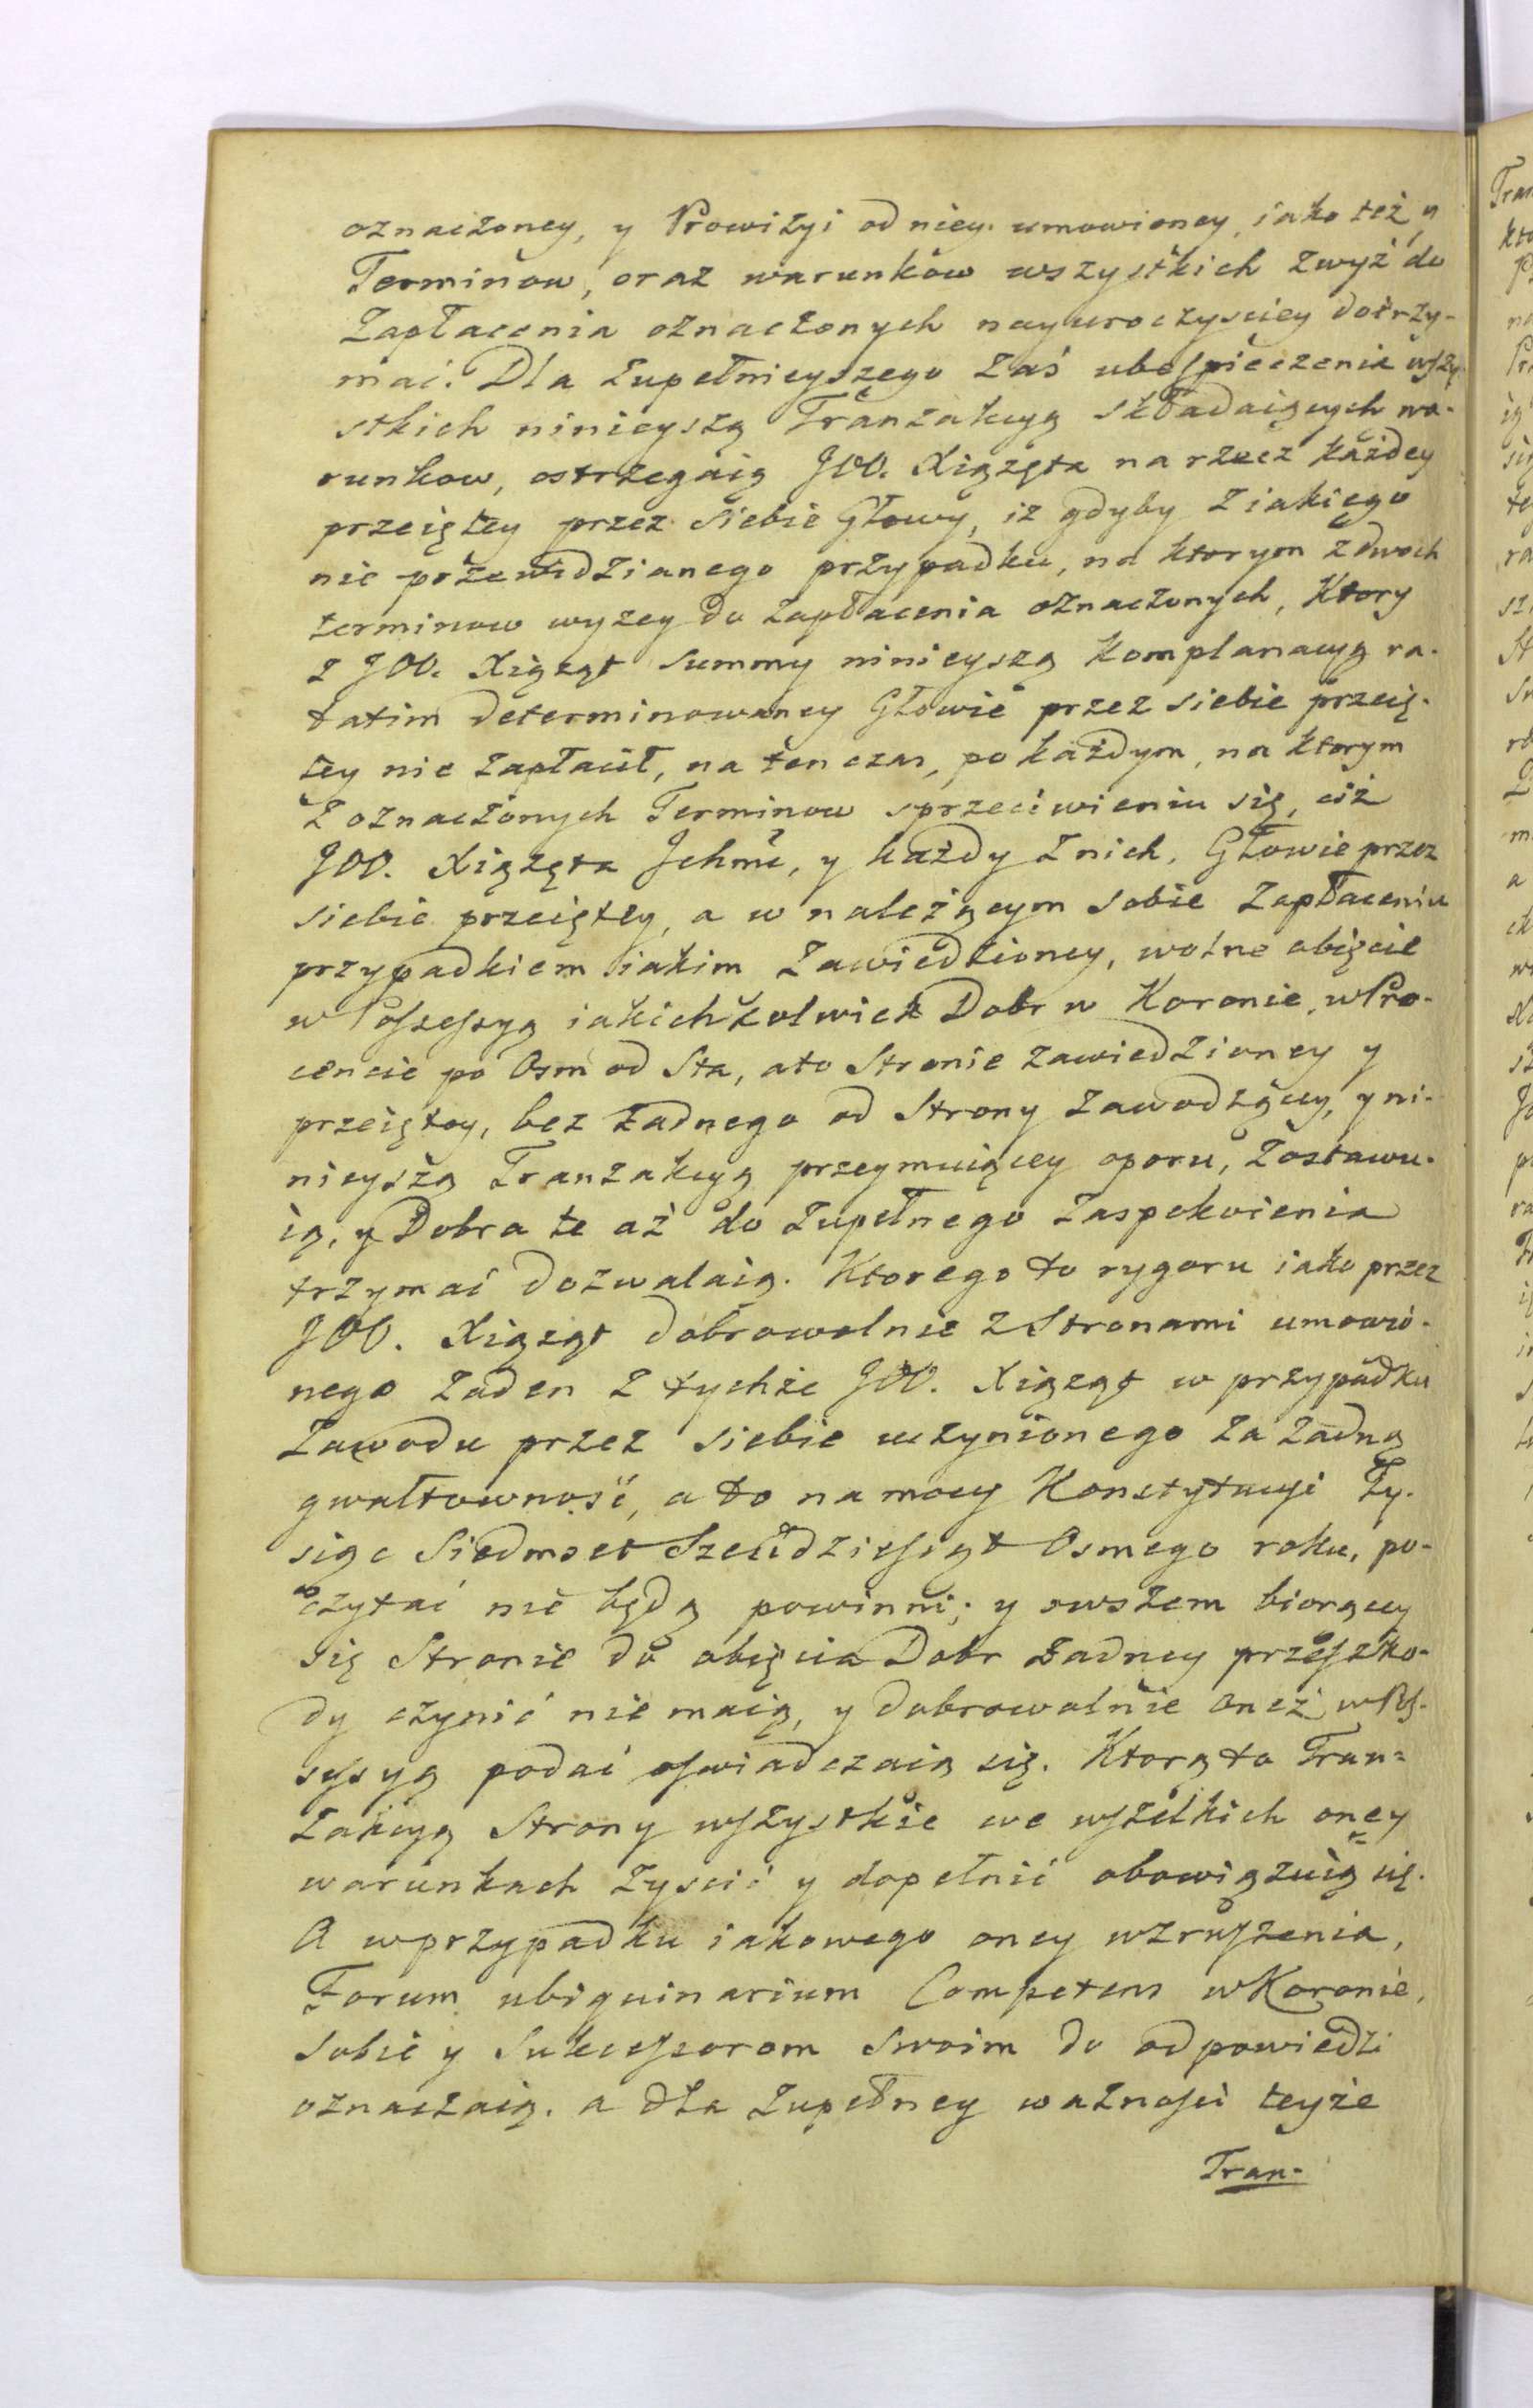 oznaczoney, y Prowizyi od niey umowioney, iako też y
Terminow, oraz warunków wszystkich zwyż do
Zapłacenia oznaczonych nayuroczysciey dotrzy-
mać. Dla zupełnieyszego zaś ubespieczenia wszy-
stkich ninieyszą Tranzakcyą składaiących wa-
runkow, ostrzegaią JOO. Xiązęta na rzecz każdey
przeiętey przez siebie Głowy, iz gdyby z iakiego
nie przewidzianego przypadku, na ktorym z dwoch
terminow wyzey do zapłacenia oznaczonych, Ktory
z JOO. Xiąząt summy ninieyszą Komplanacyą ra-
tatim determinowaney Głowie przez siebie przeię-
tey nie zapłacił, na ten czas, po każdym, na ktorym
z oznaczonych Terminow sprzeciwieniu się, ciż
JOO. Xiązęta Jchmć, y każdy z nich, Głowie przez
siebie przeiętey, a w należącym sobie Zapłaceniu
przypadkiem iakim zawiedzioney, wolne obięcie
w Possessyą iakichkolwiek Dobr w Koronie, w Pro-
cencie po Osm od Sta, a to Stronie zawiedzioney y
przeiętey, bez żadnego od Strony zawodzącey, y ni-
nieyszą Tranzakcyą przeymuiącey oporu, zostawu-
ią, y Dobra te aż do zupełnego zaspokoienia
trzymać dozwalaią. Ktorego to rygoru iako przez
JOO. Xiąząt dobrowolnie z Stronami umowio-
nego żaden z tychże JOO. Xiąząt w przypadku
Zawodu przez siebie uczynionego za żadną
gwałtowność, a to na mocy Konstytucyi Ty-
siąc Siedmset Szesćdziesiąt Osmego roku, po-
czytać nie będą powinni; y owszem biorącey
się Stronie do obięcia Dobr żadney przeszko-
dy czynić nie maią, y dobrowolnie oneż w Pos-
sessyą podać oswiadczaią się. Ktorą to Tran-
zakcyą Strony wszystkie we wszelkich oney
warunkach zyscić y dopełnić obowięzuią się.
A w przypadku iakowego oney wzruszenia,
Forum ubiquinarium Competens w Koronie,
sobie y Sukcessorom Swoim do odpowiedzi
oznaczaią. a dla zupełney ważności teyże
Tran-